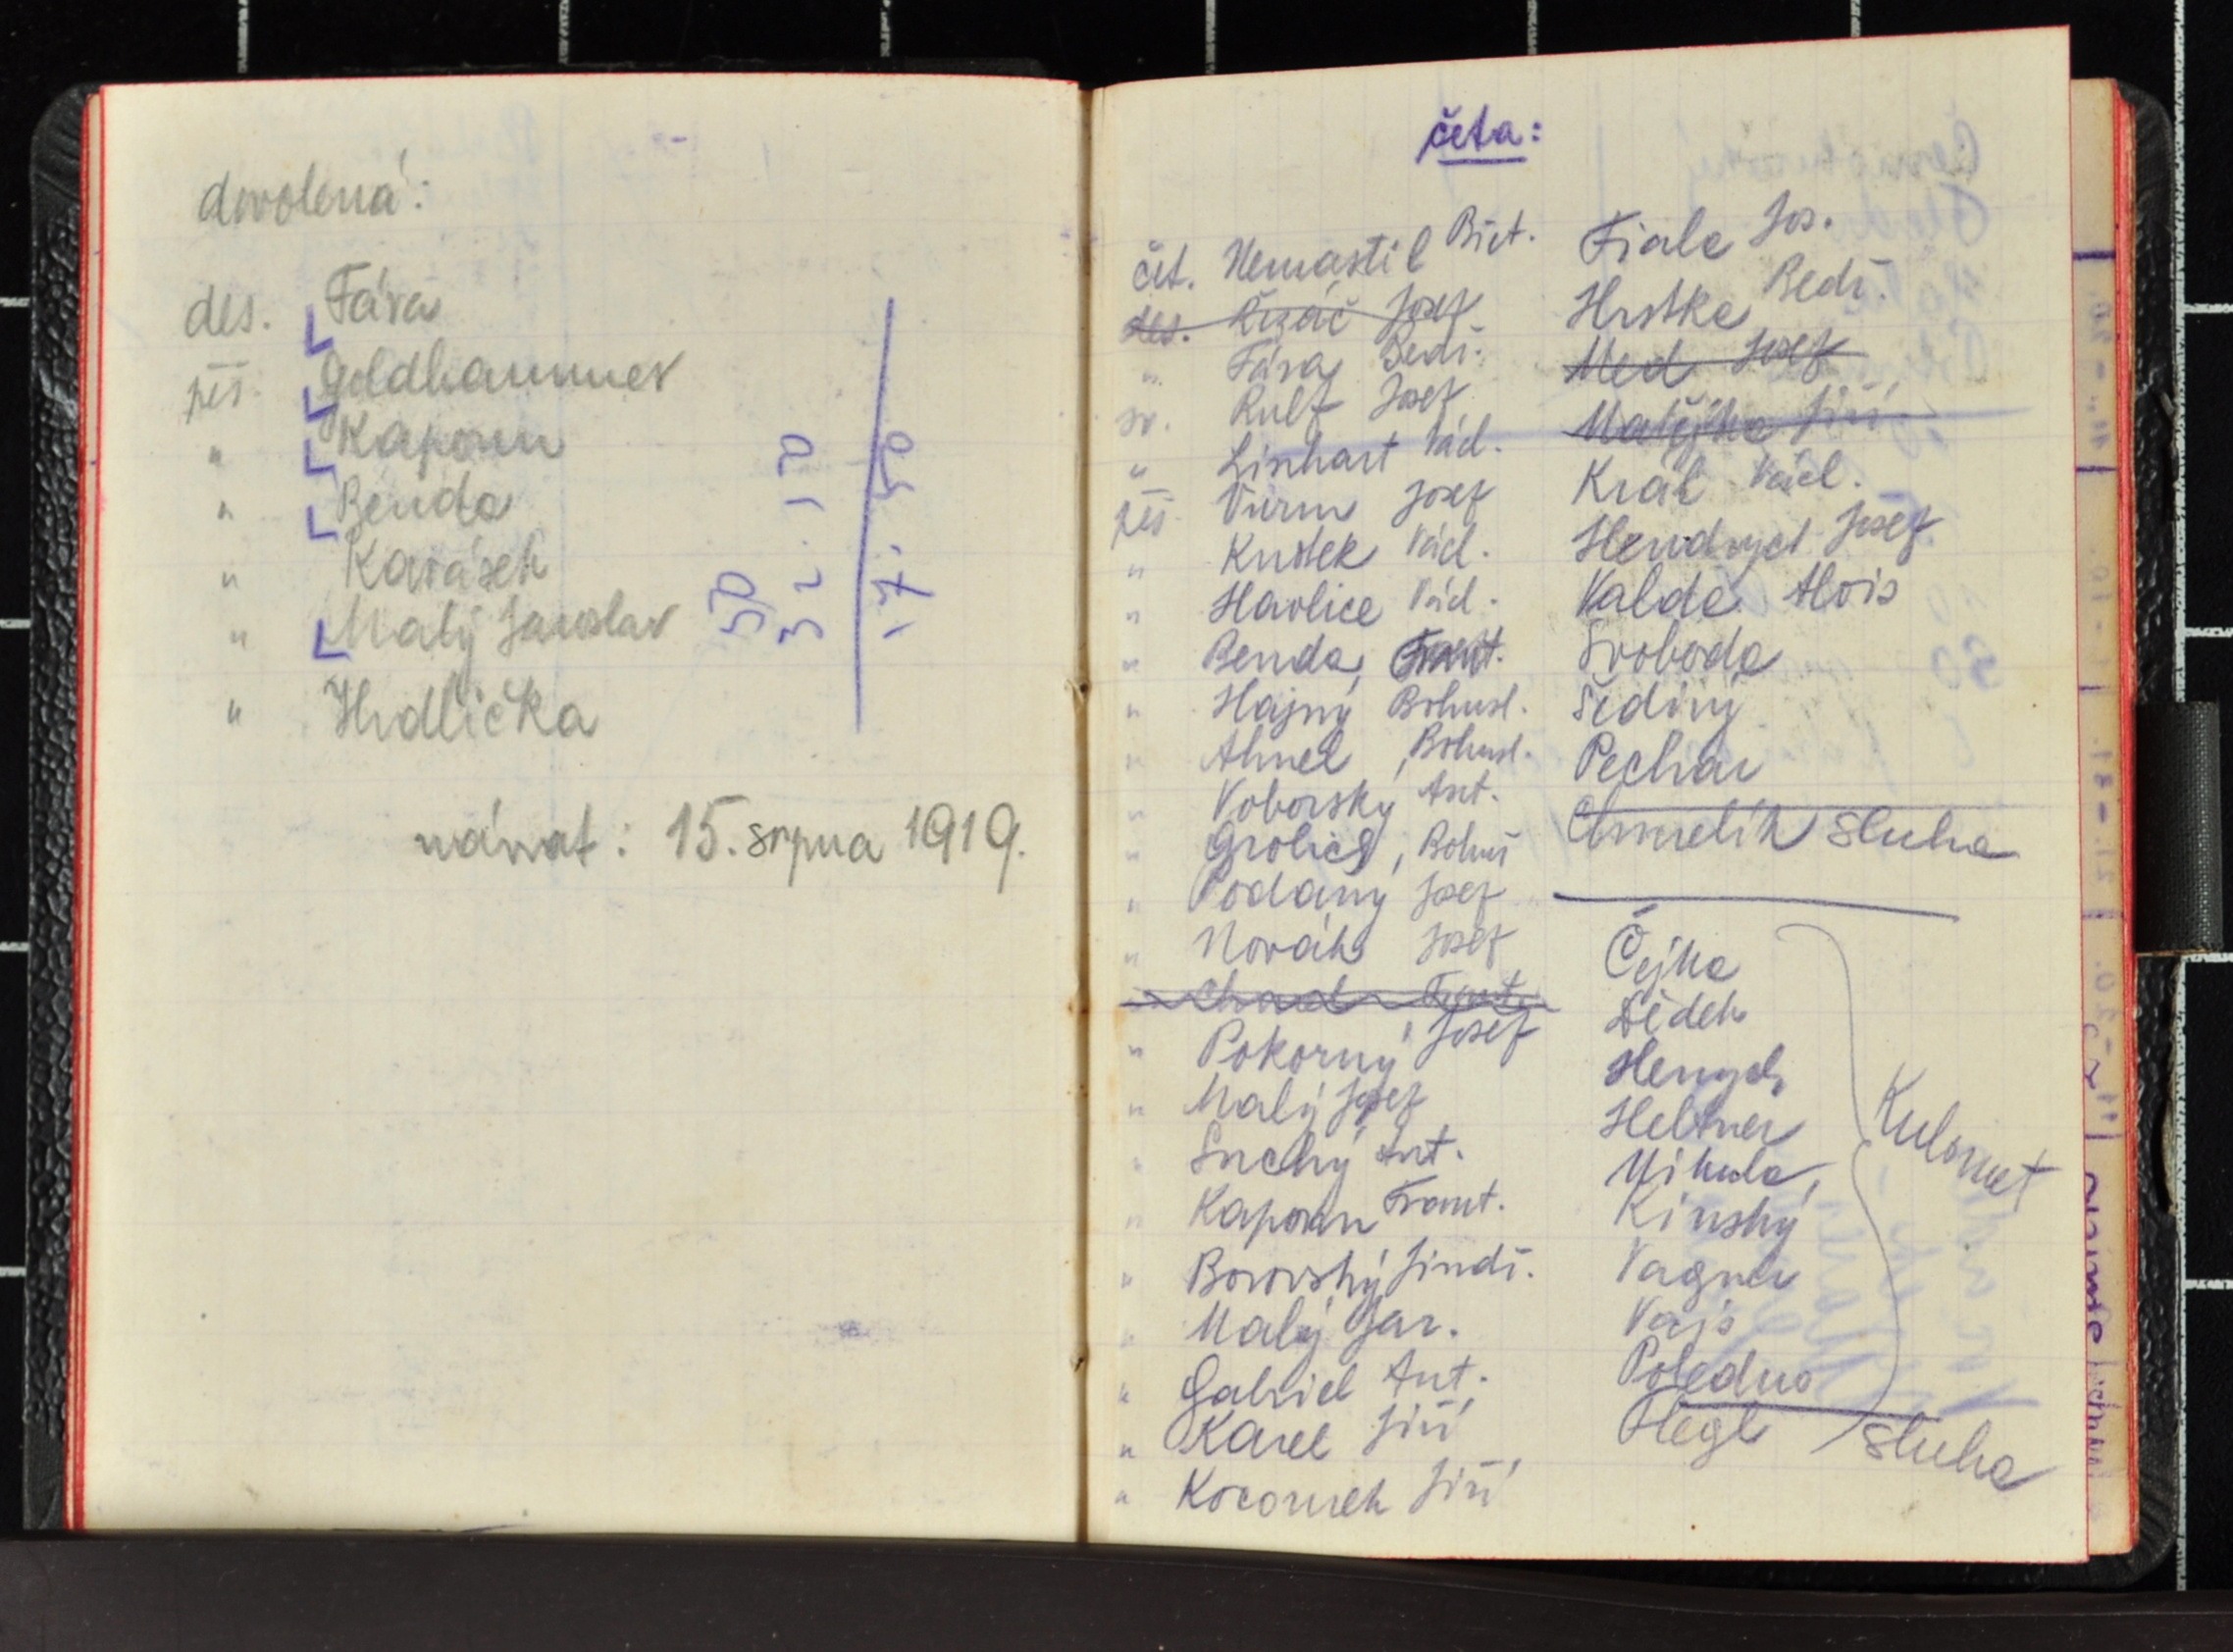 dovolená:
des. Fára
pěš. Goldhammer
" Kaporn
" Benda
" Karásek
" Malý Jaroslav
" Hrdlička
50
32.10
17.90
návrat: 15. srpna 1919.
četa:
čet. Nemastil Břet.
des. Řezáč Josef
" Fára Bedř.
sv. Rulf Josef
" Linhart Václ.
pěš Vurm Josef
" Kustek Václ.
" Havlice Václ.
" Benda, Frant.
" Hajný Bohusl.
" Ahnel, Bohusl.
" Voborský Ant.
" Grolich, Bohuš
" Podaný Josef
" Novák Josef
" Frant.
" Pokorný Josef
" Malý Josef
" Suchý Ant.
" Kaporn Frant.
" Borovský Jindř.
" Malý Jar.
" Gabriel Ant.
" Karel Jiří
" Kocourek Jiří
Fiala Jos.
Hrstka Bedř.
Med Josef
Matějka Jiří
Král Václ.
Hendrych Josef
Valde Alois
Svoboda
Šedivý
Pechar
Chmelík sluha
Čejka
Dědek
Henych
Heltner
Mikula,
Kinský
Vagner
Vajs
Poledno
Kulomet
Flégl sluha